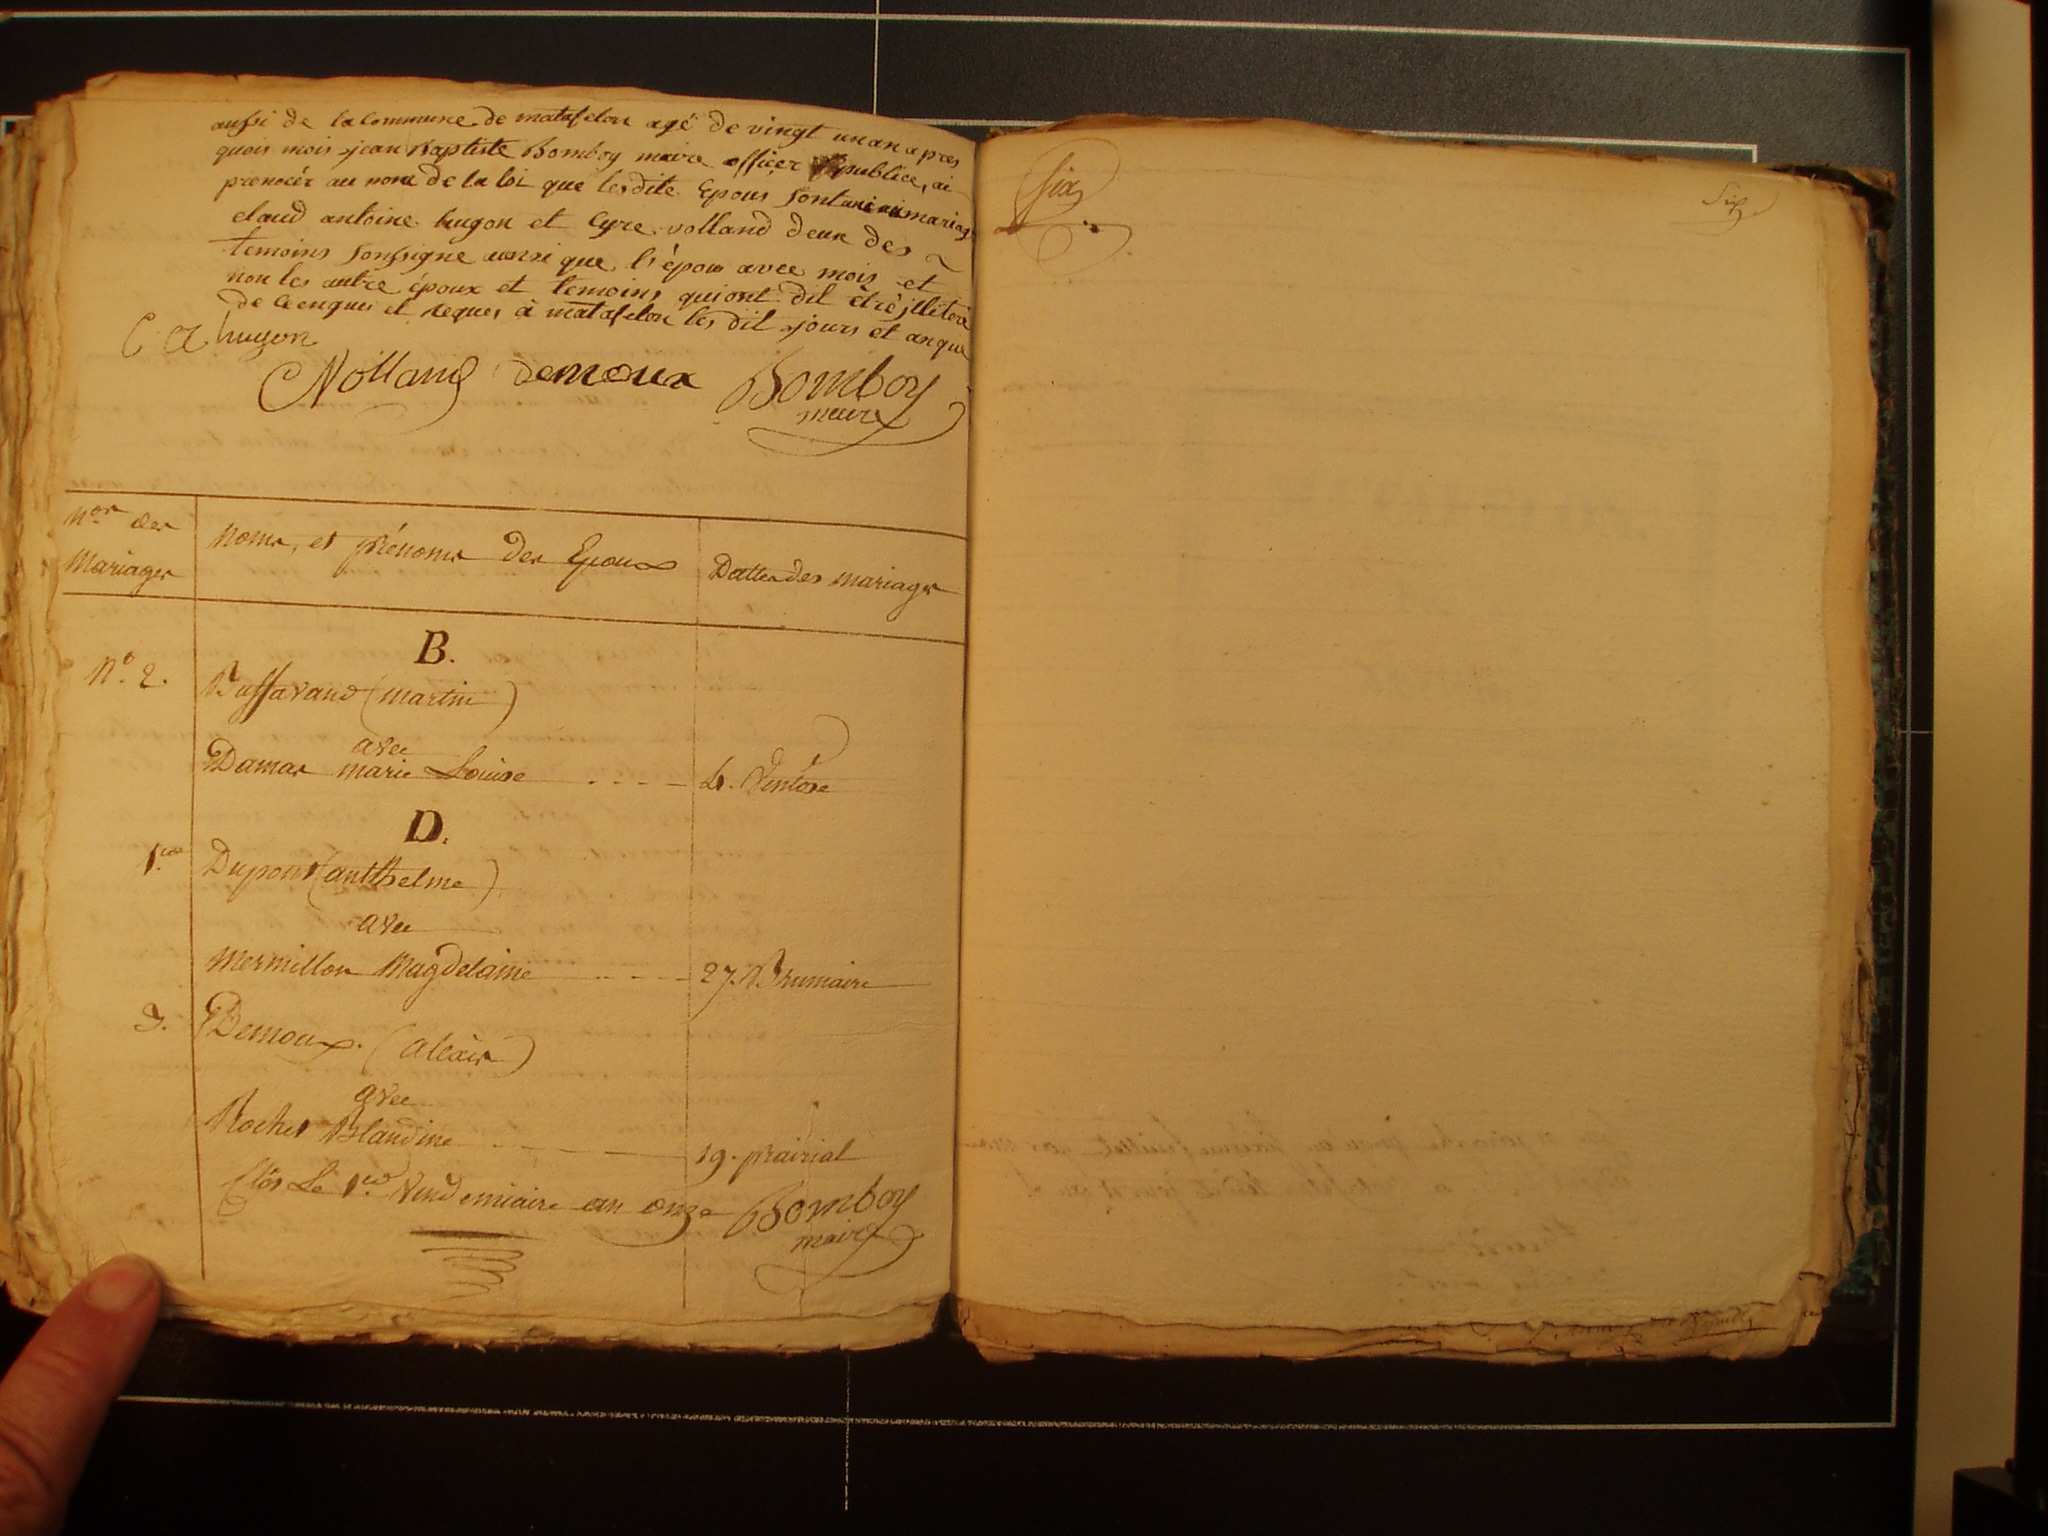 aussi de la commune de matafelon agé de vingt un an apres
quois mois jean Baptiste Bomboy maire officer publice, ai
pronocér au nom de la loi que lesdite Epous sont uni en mariag
claud antoine hugon et Cyre volland deux des
temoins sousigne ausi que l'épou avec mois et
non les autre époux et temoins qui ont dit être illiteré
de ce enquis et reques à matafelon les dit jours et an que
C A hugon
C Volland demoux Bomboy
maire
Nos des Mariages
Noms, et prénoms des Epoux
Dattes des mariages
B.
N.° 2. Buffavand (martin)
avec
Damas marie Louise . . . . 4. Ventôse
D.
1.er Dupont (anthelme)
avec
Mermillon Magdelaine . . . . 27. Brumaire
3. Demoux. (alexis)
avec
Rochet Blandine 19. prairial
Clôs Le 1.er Vendemiaire an onze Bomboy
maire
six
Six